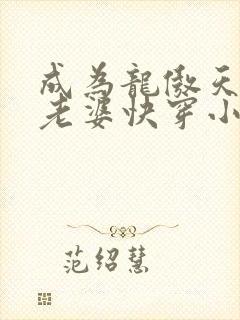 成為龍傲天
老婆快穿小
范绍慧